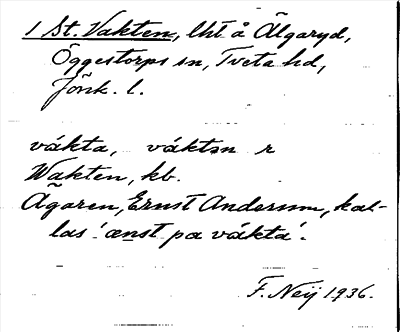 1 St. Vakten, lht å Älgaryd,
Öggestorps sn, Tveta hd,
Jönk. l.
vákta, váktən r
Wakten, kb.
Ägaren, Ernst Andersson, kal-
las ‘ænst pa vákta‘.
F. Neij 1936.